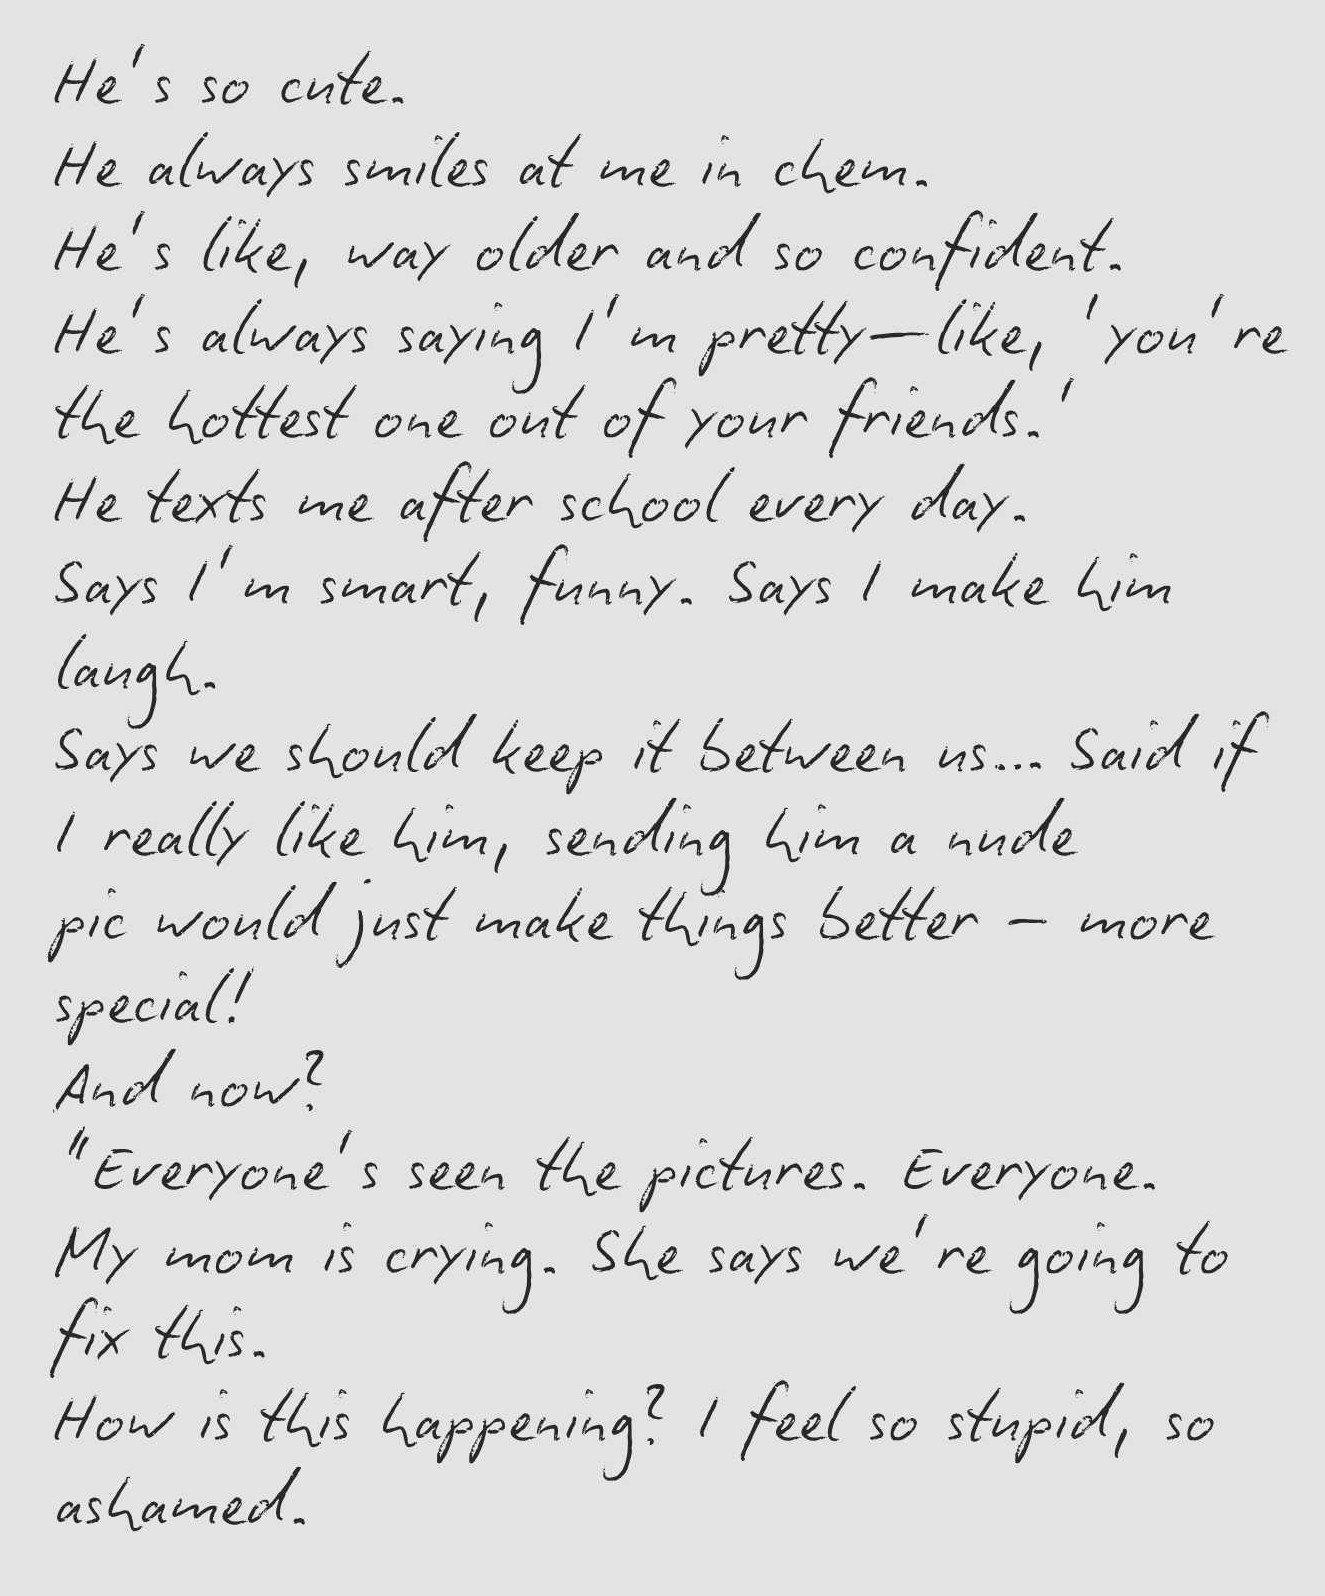 He's so cute.
He always smiles at me in chem.
He's like, way older and so confident.
He's always saying I'm pretty—like, 'you're
the hottest one out of your friends.'
He texts me after school every day.
Says I'm smart, funny. Says I make him
laugh.
Says we should keep it between us... Said if
I really like him, sending him a nude
pic would just make things better – more
special!
And now?
"Everyone's seen the pictures. Everyone.
My mom is crying. She says we're going to
fix this.
How is this happening? I feel so stupid, so
ashamed.